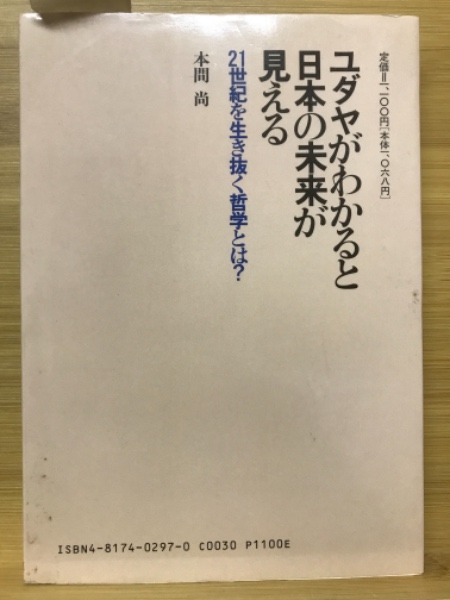 定価=一、一〇〇円[本体一、〇六八円]
ユダヤがわかると
日本の未来が
見える
21世紀を生き抜く哲学とは?
本間 尚
ISBN4-8174-0297-0 C0030 P1100E